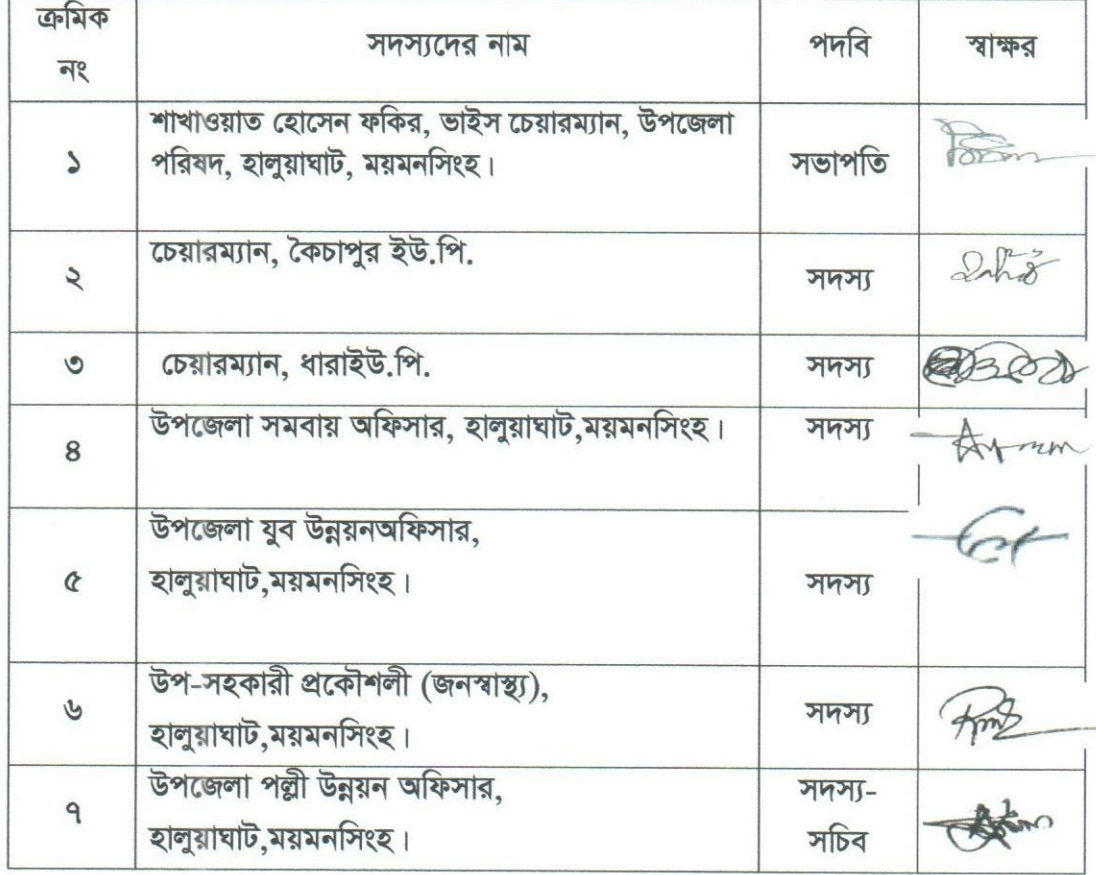 ক্রমিক
নং
সদস্যদের নাম
পদবি
স্বাক্ষর
১
শাখাওয়াত হোসেন ফকির, ভাইস চেয়ারম্যান, উপজেলা
পরিষদ, হালুয়াঘাট, ময়মনসিংহ।
সভাপতি
২
চেয়ারম্যান, কৈচাপুর ইউ.পি.
সদস্য
৩
চেয়ারম্যান, ধারাইউ.পি.
সদস্য
৪
উপজেলা সমবায় অফিসার, হালুয়াঘাট,ময়মনসিংহ।
সদস্য
৫
উপজেলা যুব উন্নয়নঅফিসার,
হালুয়াঘাট,ময়মনসিংহ।
সদস্য
৬
উপ-সহকারী প্রকৌশলী (জনস্বাস্থ্য),
হালুয়াঘাট,ময়মনসিংহ।
সদস্য
৭
উপজেলা পল্লী উন্নয়ন অফিসার,
হালুয়াঘাট,ময়মনসিংহ।
সদস্য-
সচিব